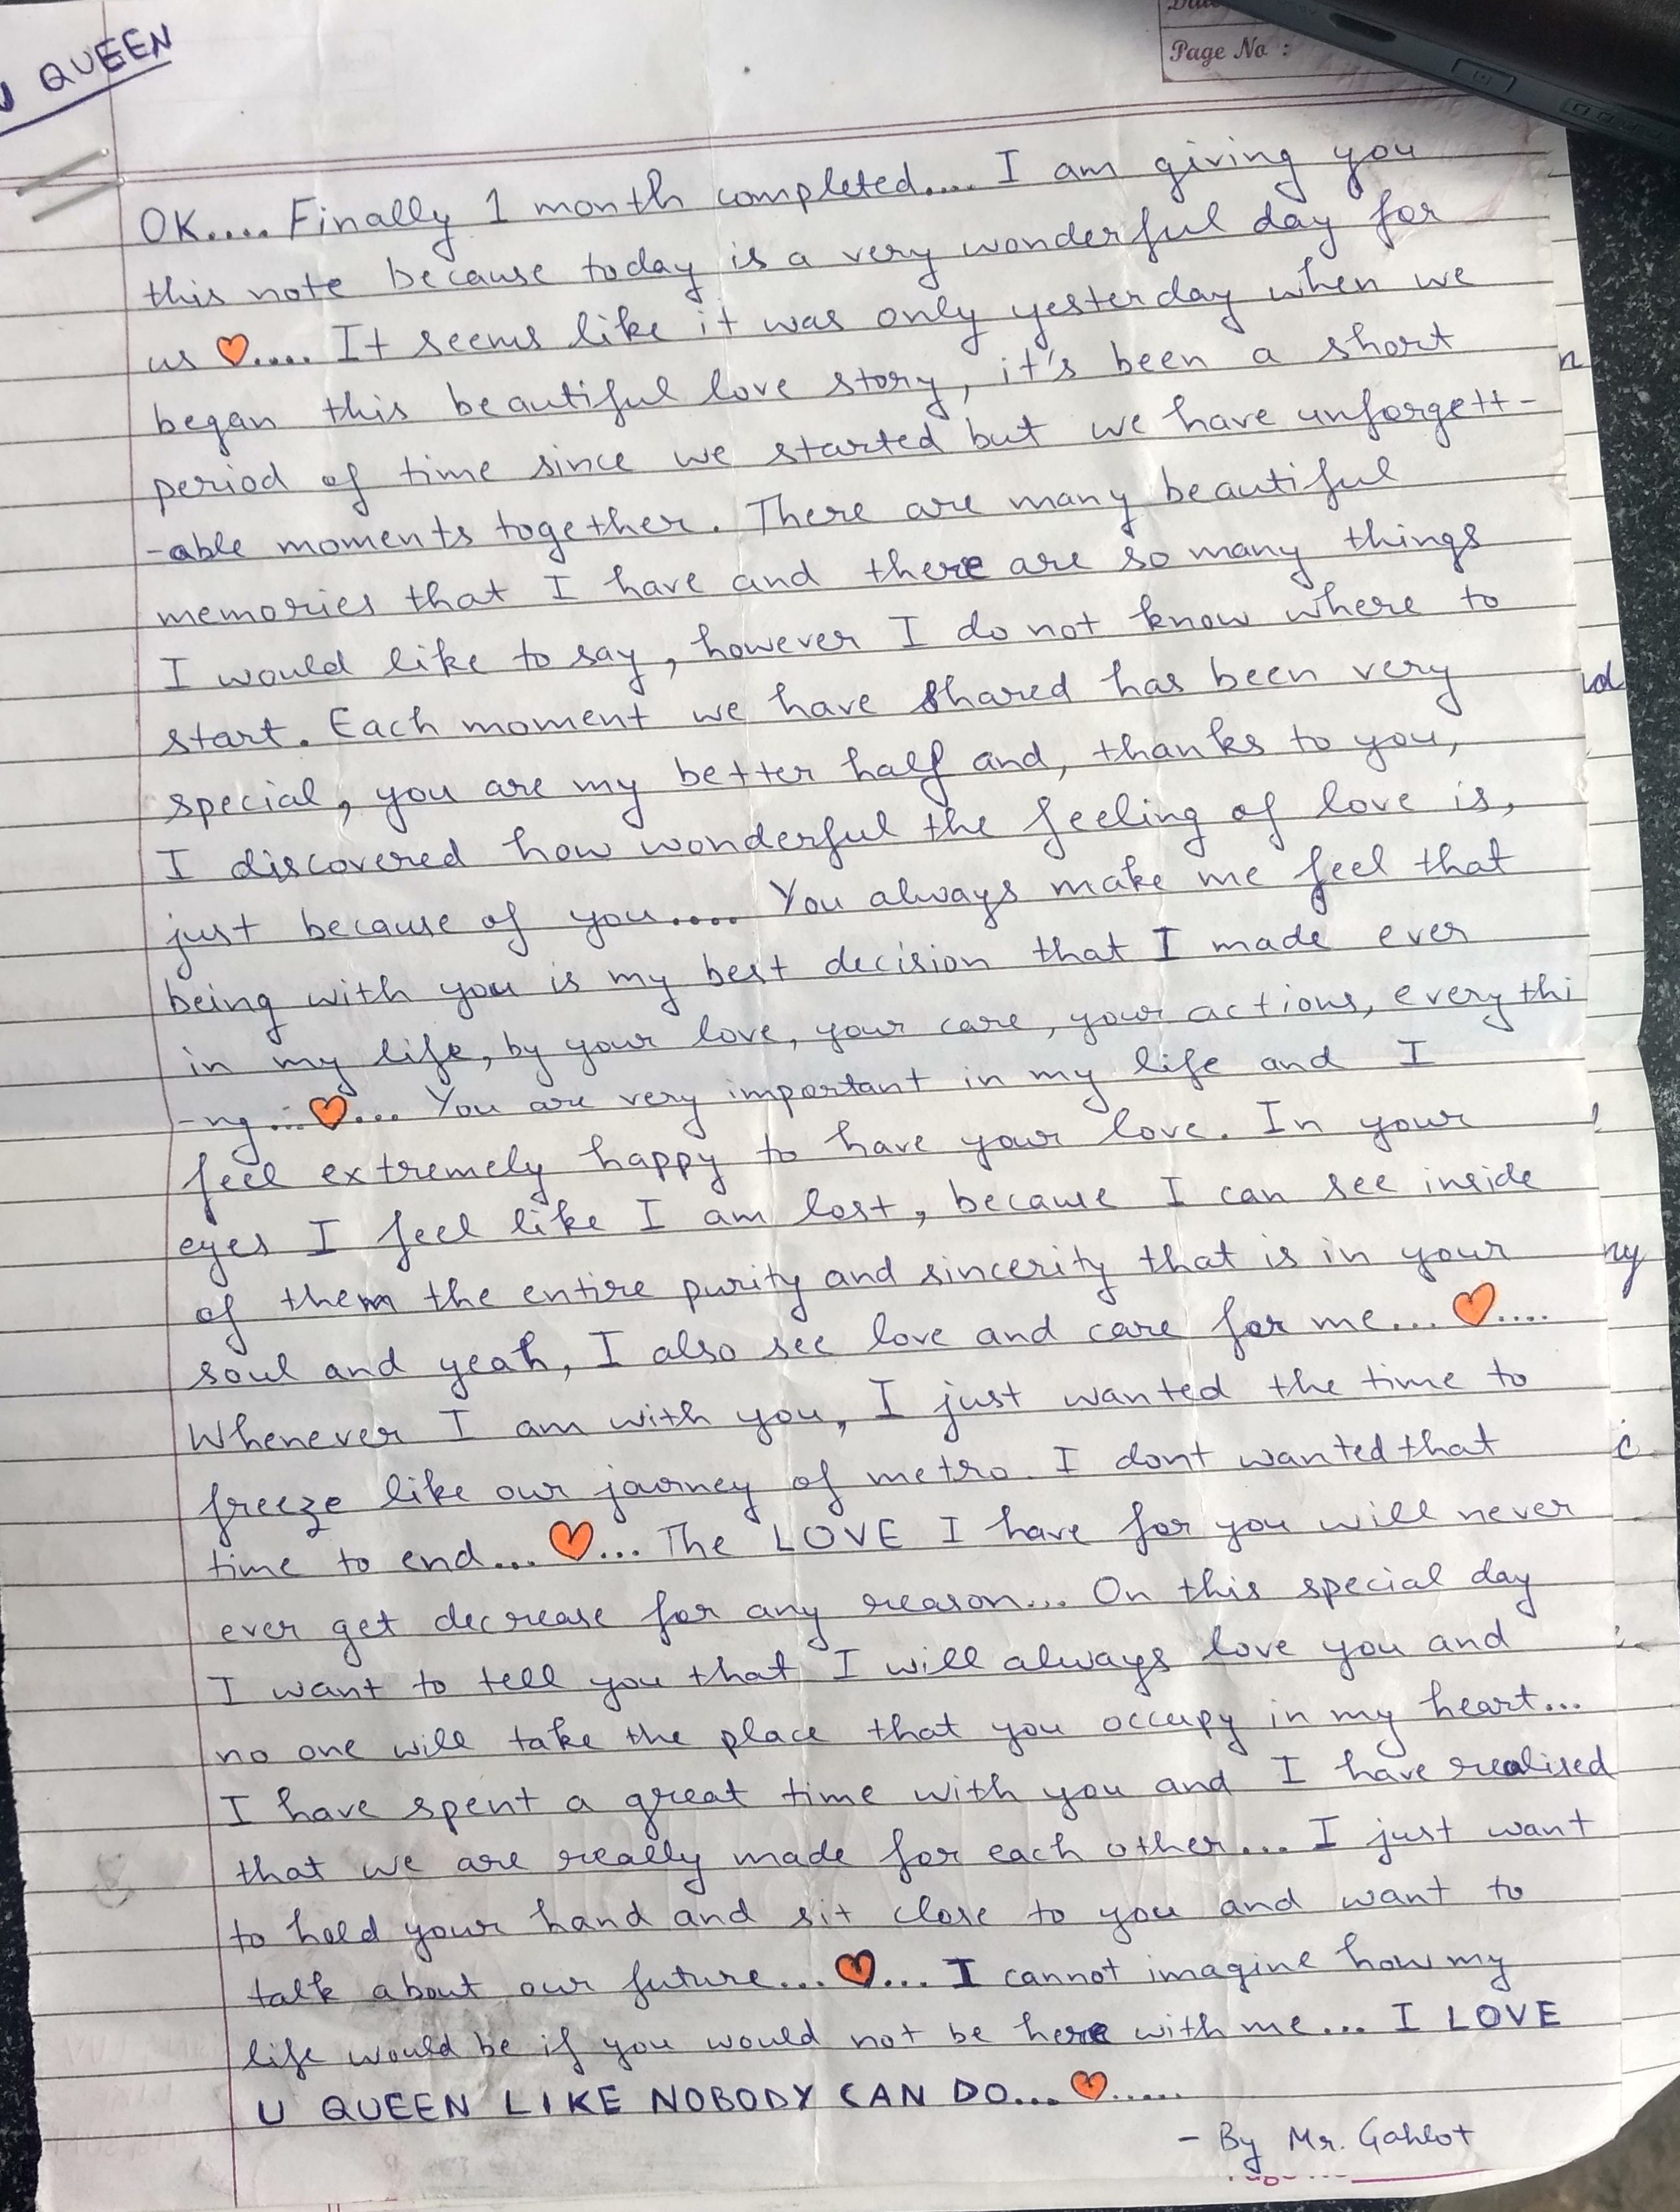 U QUEEN
Page No :
OK.... Finally 1 month completed.... I am giving you
this note because today is a very wonderful day for
us 🧡.... It seems like it was only yesterday when we
began this beautiful love story, it's been a short
period of time since we started but we have unforgett-
-able moments together. There are many beautiful
memories that I have and there are so many things
I would like to say, however I do not know where to
start. Each moment we have shared has been very
special, you are my better half and, thanks to you,
I discovered how wonderful the feeling of love is,
just because of you.... You always make me feel that
being with you is my best decision that I made ever
in my life, by your love, your care, your actions, everythi
-ng...🧡... You are very important in my life and I
feel extremely happy to have your love. In your
eyes I feel like I am lost, because I can see inside
of them the entire purity and sincerity that is in your
soul and yeah, I also see love and care for me... 🧡....
Whenever I am with you, I just wanted the time to
freeze like our journey of metro. I dont wanted that
time to end...🧡... The LOVE I have for you will never
ever get decrease for any reason... On this special day
I want to tell you that I will always love you and
no one will take the place that you occupy in my heart...
I have spent a great time with you and I have realised
that we are really made for each other... I just want
to hold your hand and sit close to you and want to
talk about our future...🧡... I cannot imagine how my
life would be if you would not be here with me... I LOVE
U QUEEN LIKE NOBODY CAN DO...🧡.....
- By Mr. Gahlot